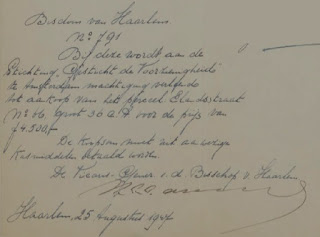 Bisdom van Haarlem
No 791
Bij deze wordt aan de
Stichting "Gesticht de Voorzienigheid"
te Amsterdam machtiging verleend
tot aankoop van het perceel Elandsstraat
No 46, groot 30 c.A. voor de prijs van
f 4500,-
De koopsom moet uit aanwezige
Kasmiddelen betaald worden.
De Vicaris-Gener. v. d. Bisschop v. Haarlem
Haarlem, 25 Augustus